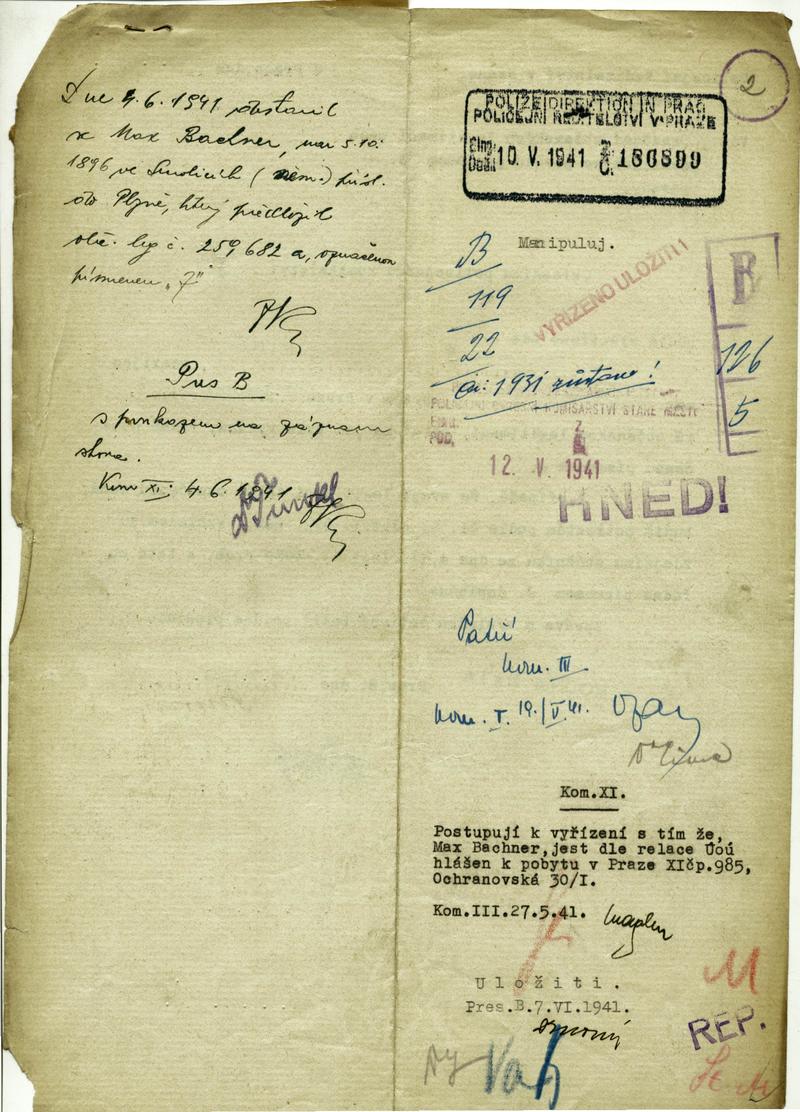 Dne 4.6.1941 obstaral
x Max Bachner, nar 5.10.
1896 ve (něm.) přísl.
do Plzně, který předložil
obč. leg č. 259682 a, označenou
písmenem „J"
Pres B
s poukazem na záznam
shora.
Kom XI. 4.6.1941
2
POLIZEIDIREKTION IN PRAG
POLICEJNÍ ŘEDITELSTVÍ V PRAZE
10. V. 1941 Č. 180899
Manipuluj.
B
119
22
VYŘÍZENO ULOŽITI!
B
126
5
ai: 1931 zůstane!
KOMISAŘSTVÍ STARÉ MĚSTO
12. V. 1941
HNED!
Patří
kom. III
kom. I. 19./V.41.
Kom.XI.
Postupují k vyřízení s tím že,
Max Bachner,jest dle relace Úoú
hlášen k pobytu v Praze XIčp.985,
Ochranovská 30/I.
Kom.III.27.5.41.
Uložiti.
Pres.B.7.VI.1941.
M
REP.